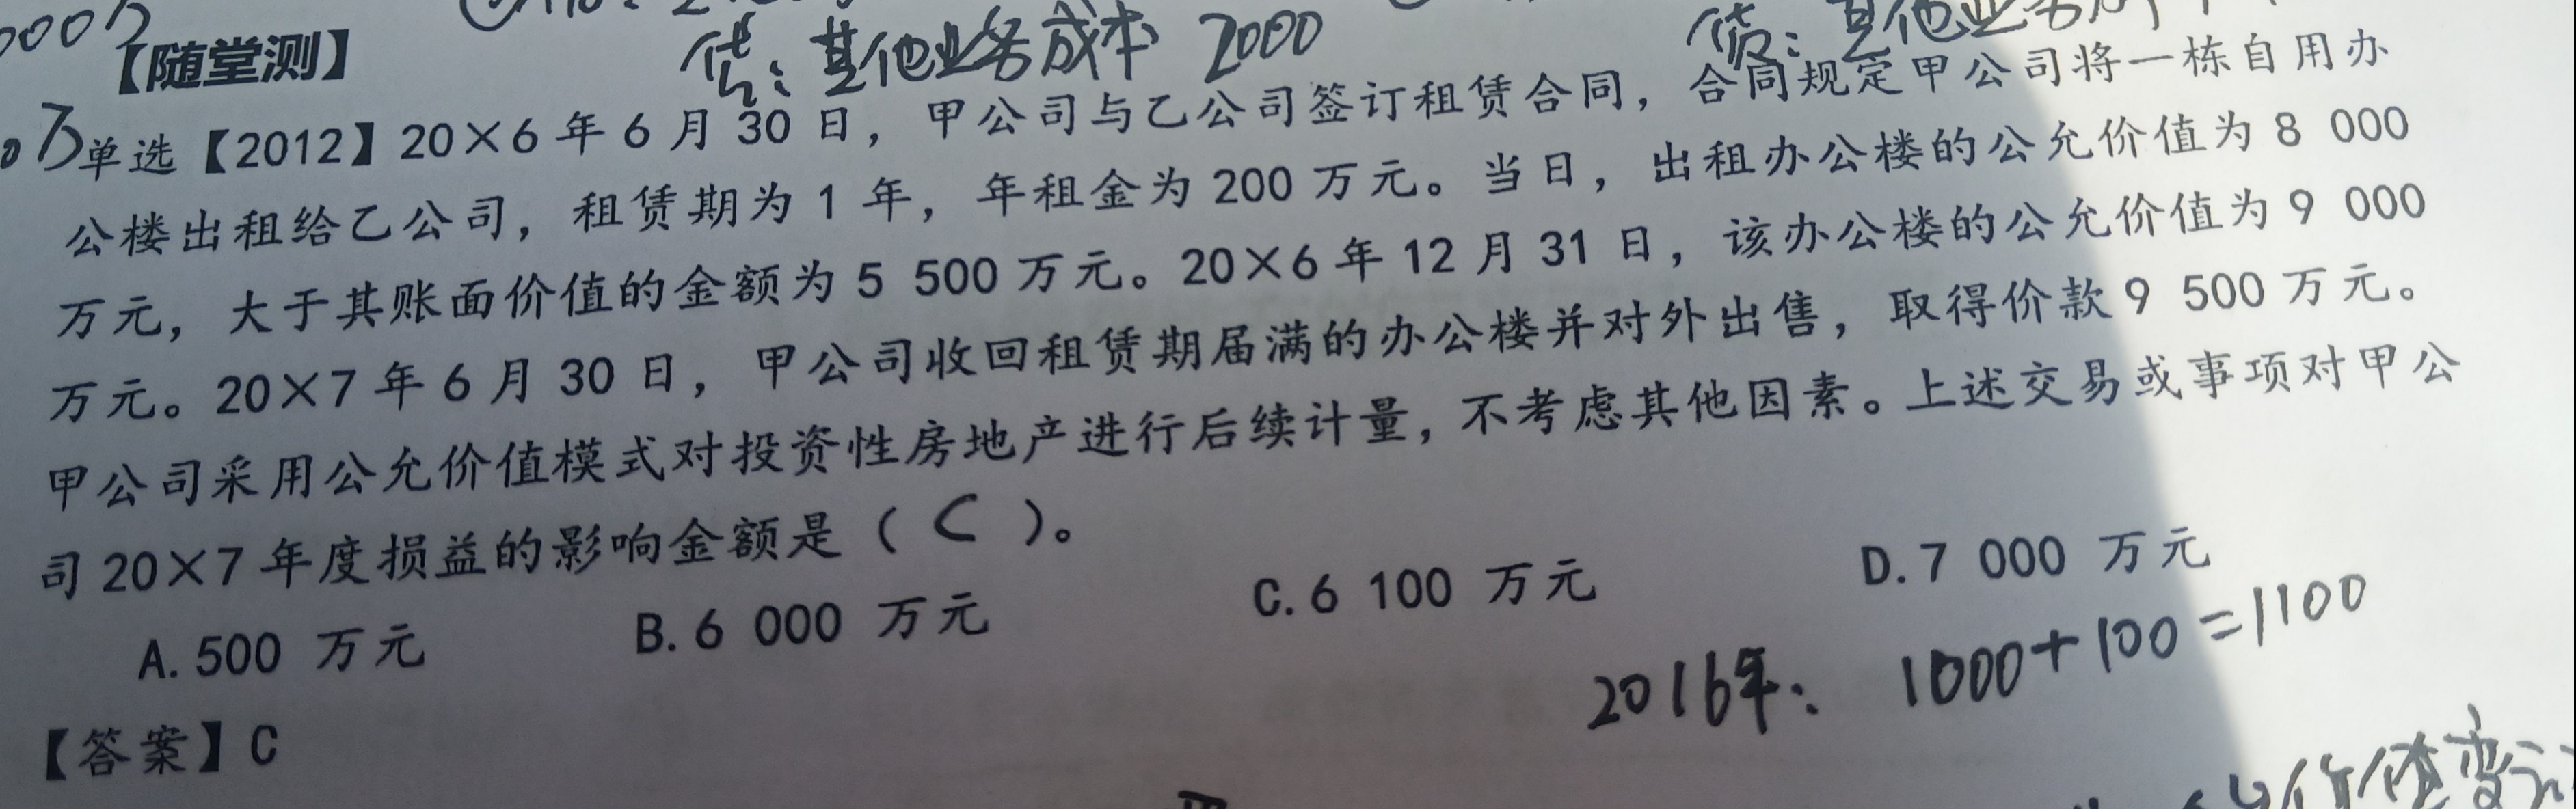 贷：其他业务成本 2000
【随堂测】
单选【2012】20×6 年 6 月 30 日，甲公司与乙公司签订租赁合同，合同规定甲公司将一栋自用办
公楼出租给乙公司，租赁期为 1 年，年租金为 200 万元。当日，出租办公楼的公允价值为 8 000
万元，大于其账面价值的金额为 5 500 万元。20×6 年 12 月 31 日，该办公楼的公允价值为 9 000
万元。20×7 年 6 月 30 日，甲公司收回租赁期届满的办公楼并对外出售，取得价款 9 500 万元。
甲公司采用公允价值模式对投资性房地产进行后续计量，不考虑其他因素。上述交易或事项对甲公
司 20×7 年度损益的影响金额是（ C ）。
A. 500 万元 B. 6 000 万元 C. 6 100 万元 D. 7 000 万元
2016年： 1000+100=1100
【答案】C